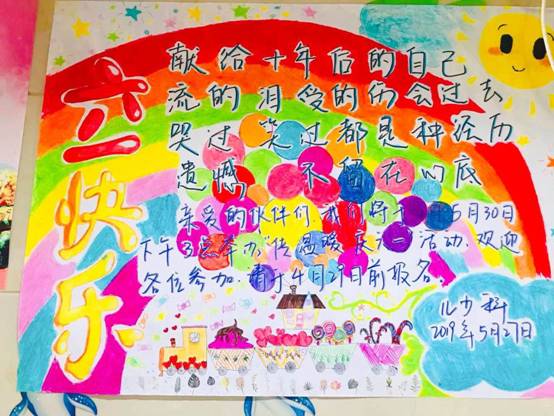 六一快乐
献给十年后的自己
流的泪受的伤会过去
哭过 笑过都是种经历
遗憾, 不留在心底
亲爱的伙伴们.我们将于 5月30日
下午3点举办"传温暖庆六一"活动.欢迎
各位参加.请于4月29日前报名.
儿少科
2019年5月27日